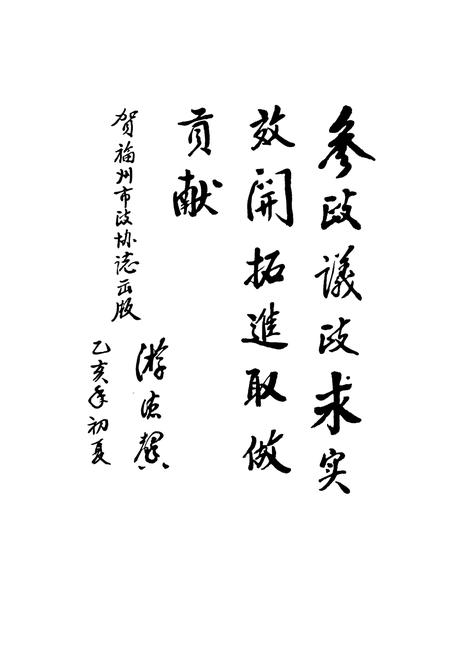 参政議政求实
效開拓進取做
貢献
贺福州市政协誌出版
游德馨
乙亥年初夏